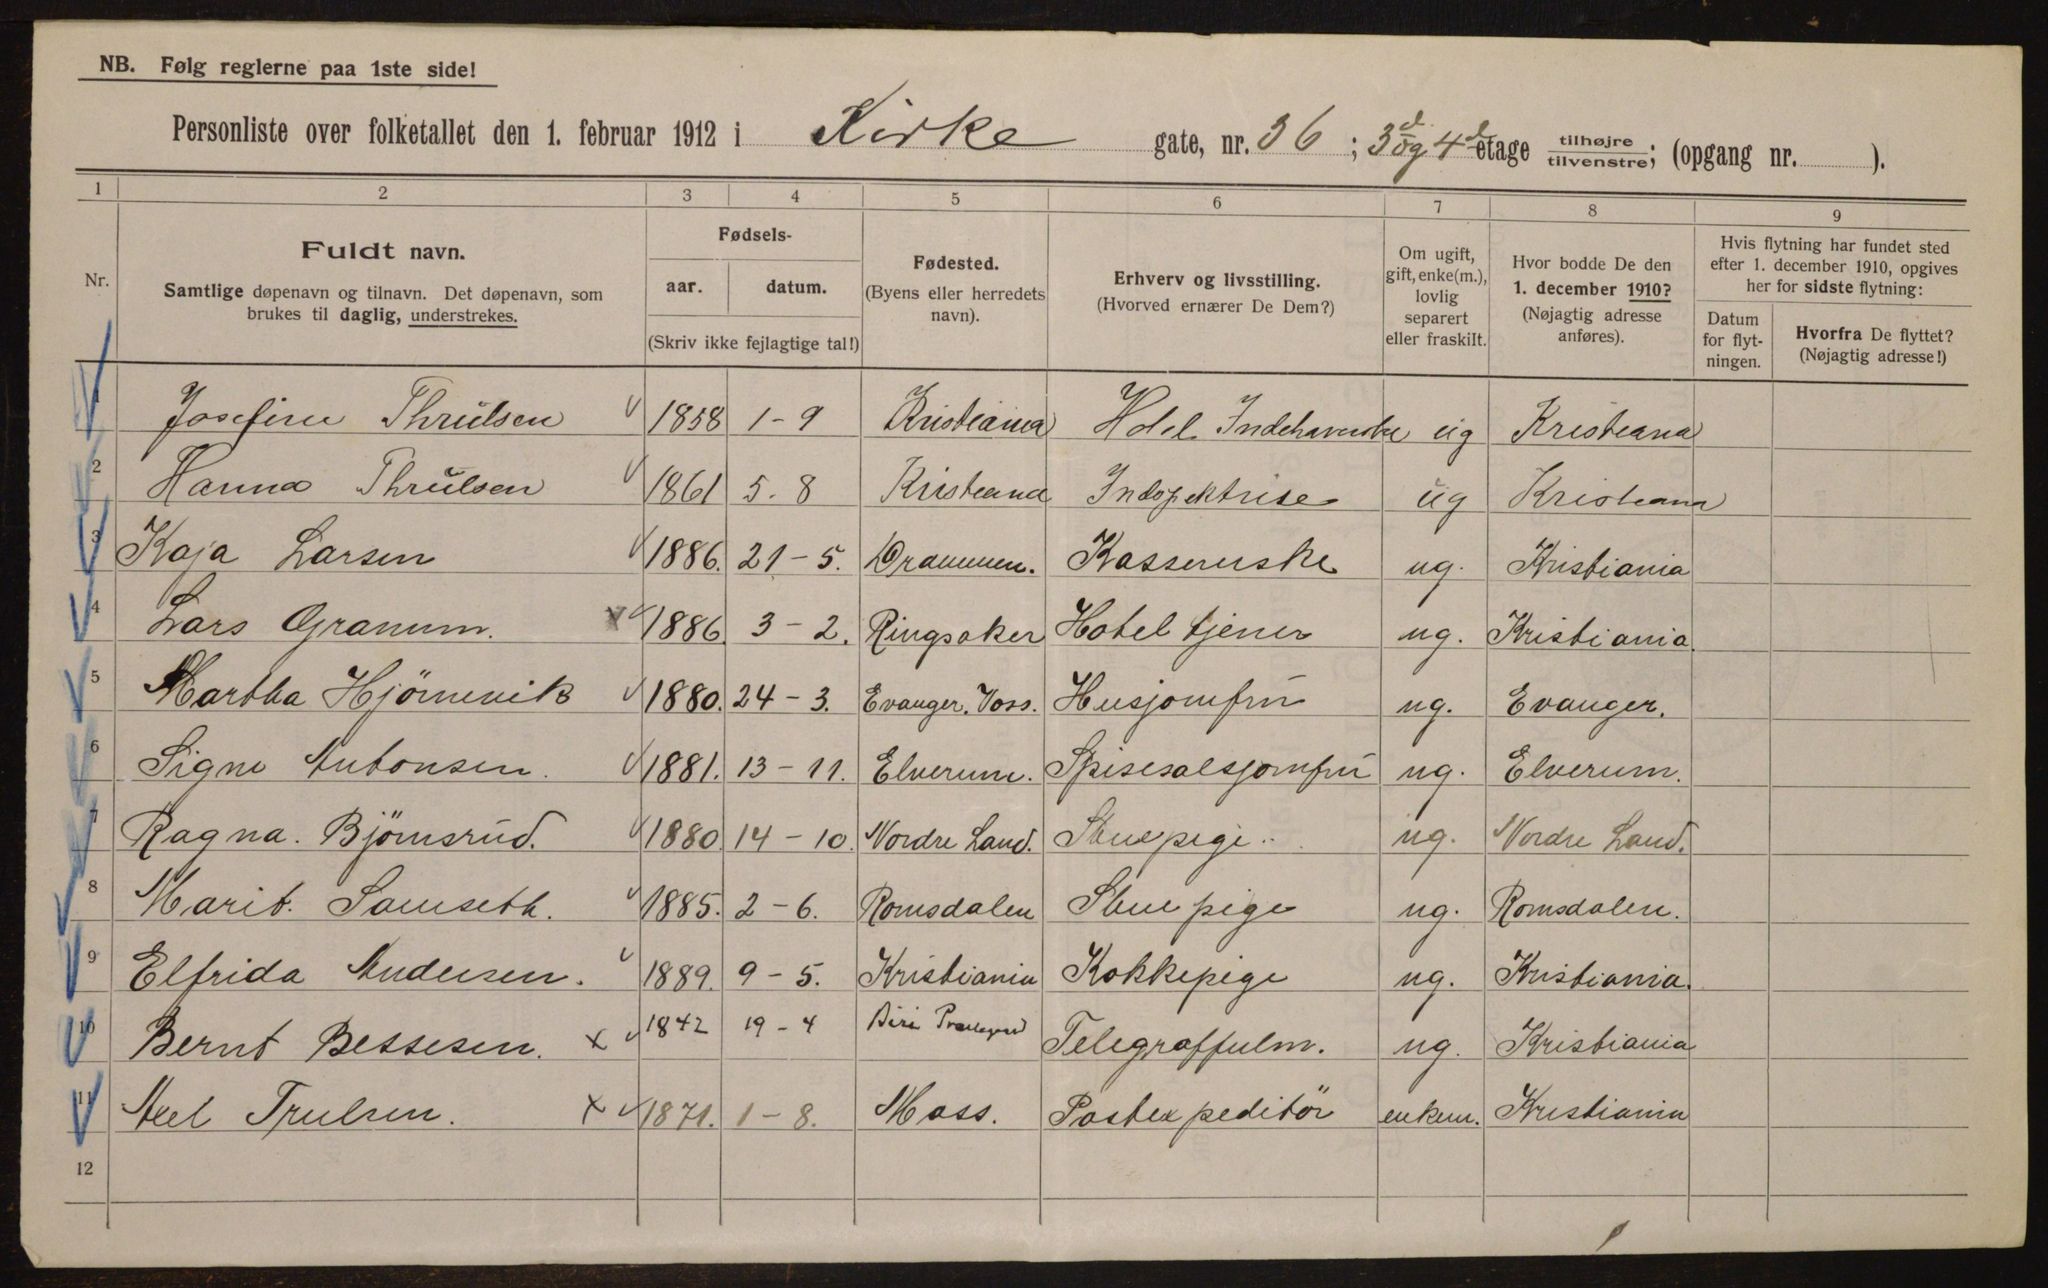 NB. Følg reglerne paa 1ste side!
Personliste over folketallet den 1. februar 1912 i Kirke gate, nr. 36 ; 3d og 4d etage tilhøjre / tilvenstre ; (opgang nr. ).
1 2 3 4 5 6 7 8 9
Nr.
Fuldt navn.
Samtlige døpenavn og tilnavn. Det døpenavn, som
brukes til daglig, understrekes.
Fødsels-
aar. datum.
(Skriv ikke fejlagtige tal!)
Fødested.
(Byens eller herredets
navn).
Erhverv og livsstilling.
(Hvorved ernærer De Dem?)
Om ugift,
gift, enke(m.),
lovlig
separert
eller fraskilt.
Hvor bodde De den
1. december 1910?
(Nøjagtig adresse
anføres).
Hvis flytning har fundet sted
efter 1. december 1910, opgives
her for sidste flytning:
Datum
for flyt-
ningen.
Hvorfra De flyttet?
(Nøjagtig adresse!)
1 Josefine Thrulsen 1858 1-9 Kristiania Hotel Indehaverske ug Kristiana
2 Hanna Thrulsen 1861 5.8 Kristiana Indspektrise ug Kristiana
3 Kaja Larsen 1886. 21-5. Drammen. Kassererske ug. Kristiania
4 Lars Granum. 1886. 3-2. Ringsaker Hotel tjener ug. Kristiania.
5 Martha Hjörnevik 1880. 24-3. Evanger. Voss. Husjomfru ug. Evanger.
6 Signe Antonsen. 1881. 13-11. Elverum. Spisesalsjomfru ug. Elverum.
7 Ragna. Björnsrud. 1880. 14-10. Nordre Land. Stuepige.. ug. Nordre Land.
8 Marit. Samseth. 1885. 2-6. Romsdalen Stuepige ug. Romsdalen.
9 Elfrida Andersen. 1889. 9-5. Kristiania Kokkepige ug. Kristiania.
10 Bernt Bessesen. x 1842 19-4 Biri Telegraffulm. ug. Kristiania
11 Axel Trulsen. x 1871. 1-8. Moss. Postexpeditör enkem. Kristiania
12